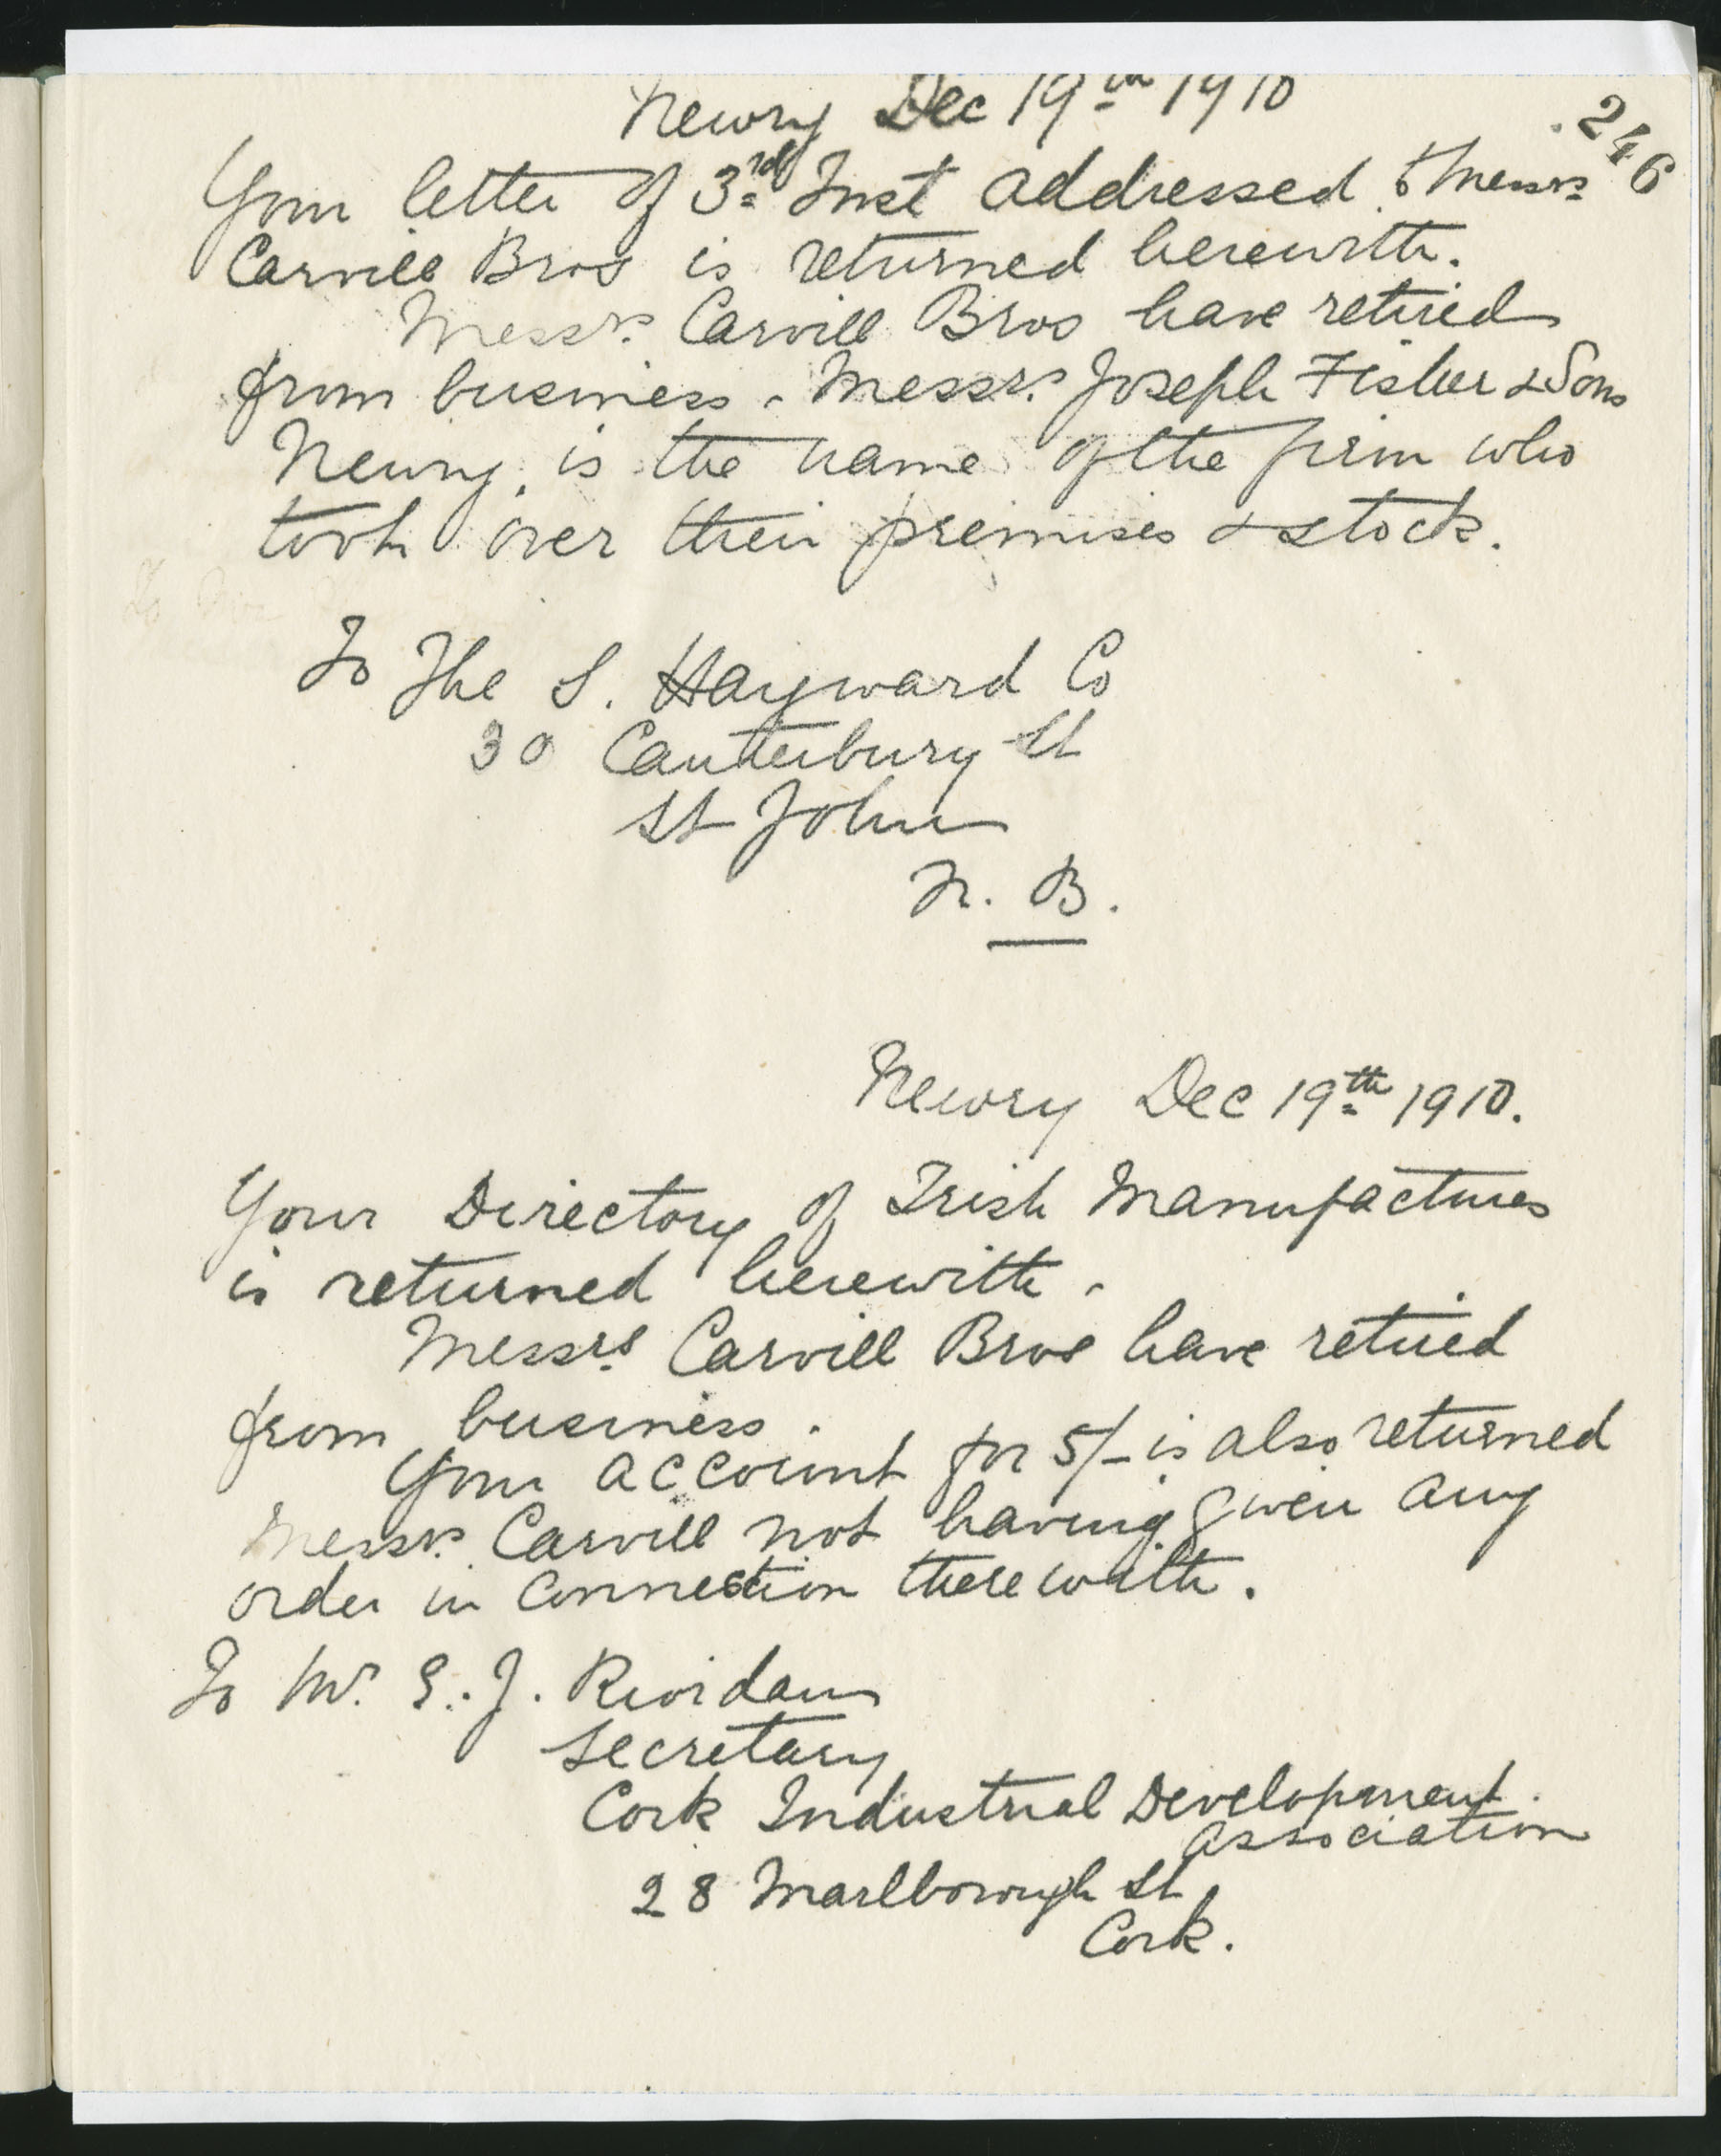 Newry Dec 19th 1910
246
Your letter of 3rd Inst addressed to Messrs
Carvill Bros is returned herewith.
Messrs Carvill Bros have retired
from business. Messrs. Joseph Fisher & Sons
Newry, is the name of the firm who
took over their premises & stock.
To The S. Hayward Co
30 Canterbury St
St John
N. B.
Newry Dec 19th 1910.
Your Directory of Irish Manufactures
is returned herewith.
Messrs Carvill Bros have retired
from business.
Your account for 5/- is also returned
Messrs. Carvill not having given any
order in connection therewith.
To Mr. E. J. Riordan
Secretary
Cork Industrial Development.
Association
28 Marlborough St,
Cork.